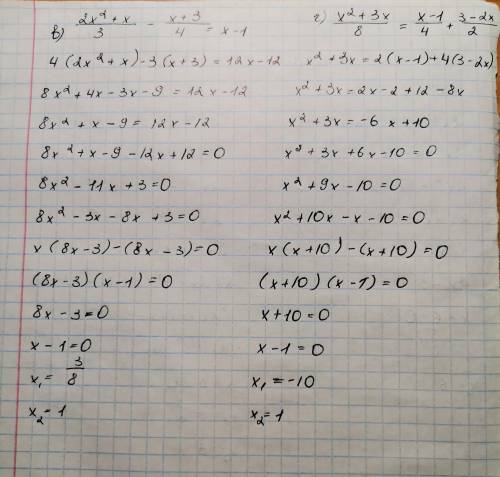 в) (2x² + x)/3 - (x + 3)/4 = x - 1
4(2x² + x) - 3(x + 3) = 12x - 12
8x² + 4x - 3x - 9 = 12x - 12
8x² + x - 9 = 12x - 12
8x² + x - 9 - 12x + 12 = 0
8x² - 11x + 3 = 0
8x² - 3x - 8x + 3 = 0
x(8x - 3) - (8x - 3) = 0
(8x - 3)(x - 1) = 0
8x - 3 = 0
x - 1 = 0
x₁ = 3/8
x₂ = 1
г) (x² + 3x)/8 = (x - 1)/4 + (3 - 2x)/2
x² + 3x = 2(x - 1) + 4(3 - 2x)
x² + 3x = 2x - 2 + 12 - 8x
x² + 3x = -6x + 10
x² + 3x + 6x - 10 = 0
x² + 9x - 10 = 0
x² + 10x - x - 10 = 0
x(x + 10) - (x + 10) = 0
(x + 10)(x - 1) = 0
x + 10 = 0
x - 1 = 0
x₁ = -10
x₂ = 1